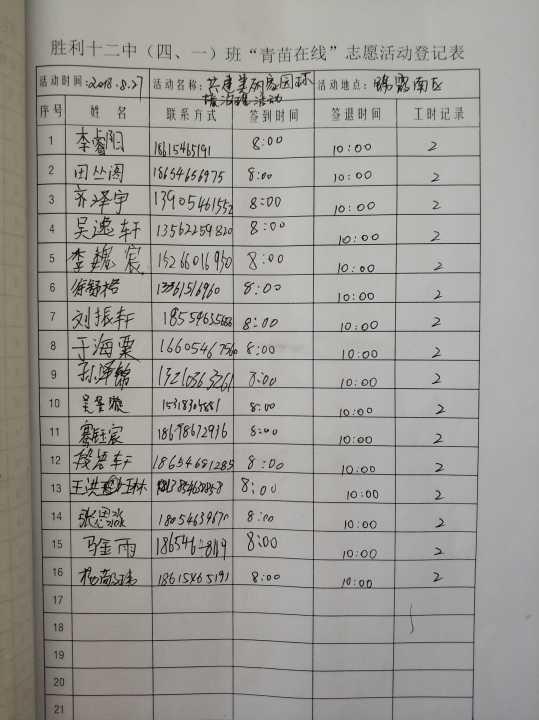 胜利十二中（四、一）班“青苗在线”志愿活动登记表
活动时间：2018.8.27 活动名称：共建美丽家园环境治理活动 活动地点：锦霞南区
序号 姓名 联系方式 签到时间 签退时间 工时记录
1 李睿阳 18615465191 8:00 10:00 2
2 田丛阁 18654656975 8:00 10:00 2
3 齐泽宇 13905461552 8:00 10:00 2
4 吴逸轩 13562259820 8:00 10:00 2
5 李魏宸 15266016950 8:00 10:00 2
6 8:00 10:00 2
7 刘振轩 8:00 10:00 2
8 于海粟 8:00 10:00 2
9 孙泽锦 8:00 10:00 2
10 8:00 10:00 2
11 18678672916 8:00 10:00 2
12 18654681285 8:00 10:00 2
13 8:00 10:00 2
14 张恩 8:00 10:00 2
15 马金雨 8:00 10:00 2
16 18615465191 8:00 10:00 2
17
18
19
20
21